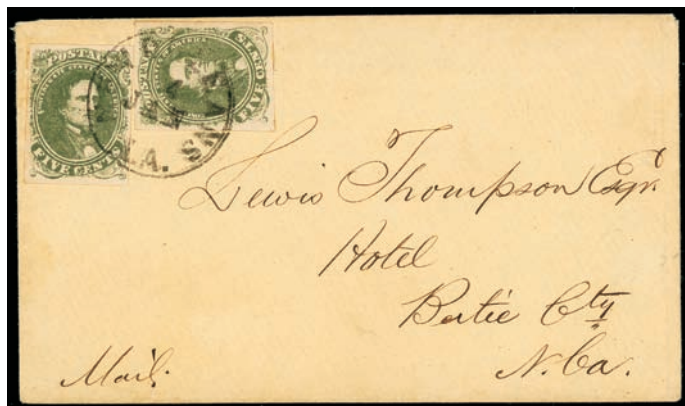 POSTAGE
FIVE CENTS
POSTAGE
FIVE CENTS
LA.
Lewis Thompson Esqr.
Hotel
Bertie Cty
N. Ca.
Mail.